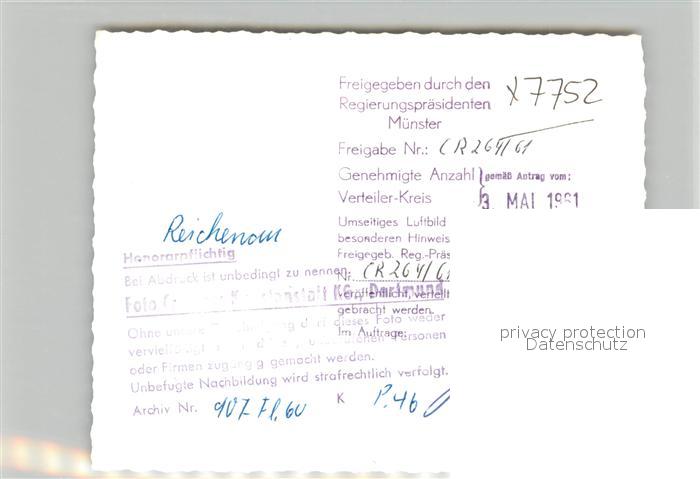 Freigegeben durch den
Regierungspräsidenten
Münster
X7752
Freigabe Nr.: CR 264/61
Genehmigte Anzahl
gemäß Antrag vom:
Verteiler-Kreis
3. MAI 1961
Umseitiges Luftbild
besonderen Hinweis
Freigegeb. Reg.-Präs
Nr. CR 264/61
veröffentlicht, verteilt
gebracht werden.
Im Auftrage:
Reichenau
Honorarpflichtig
Bei Abdruck ist unbedingt zu nennen:
Foto KG., Dortmund
Ohne unsere darf dieses Foto weder
vervielfältigt Personen
oder Firmen zugängig gemacht werden.
Unbefugte Nachbildung wird strafrechtlich verfolgt.
Archiv Nr. 907 Fl. 60 K P. 46
privacy protection
Datenschutz